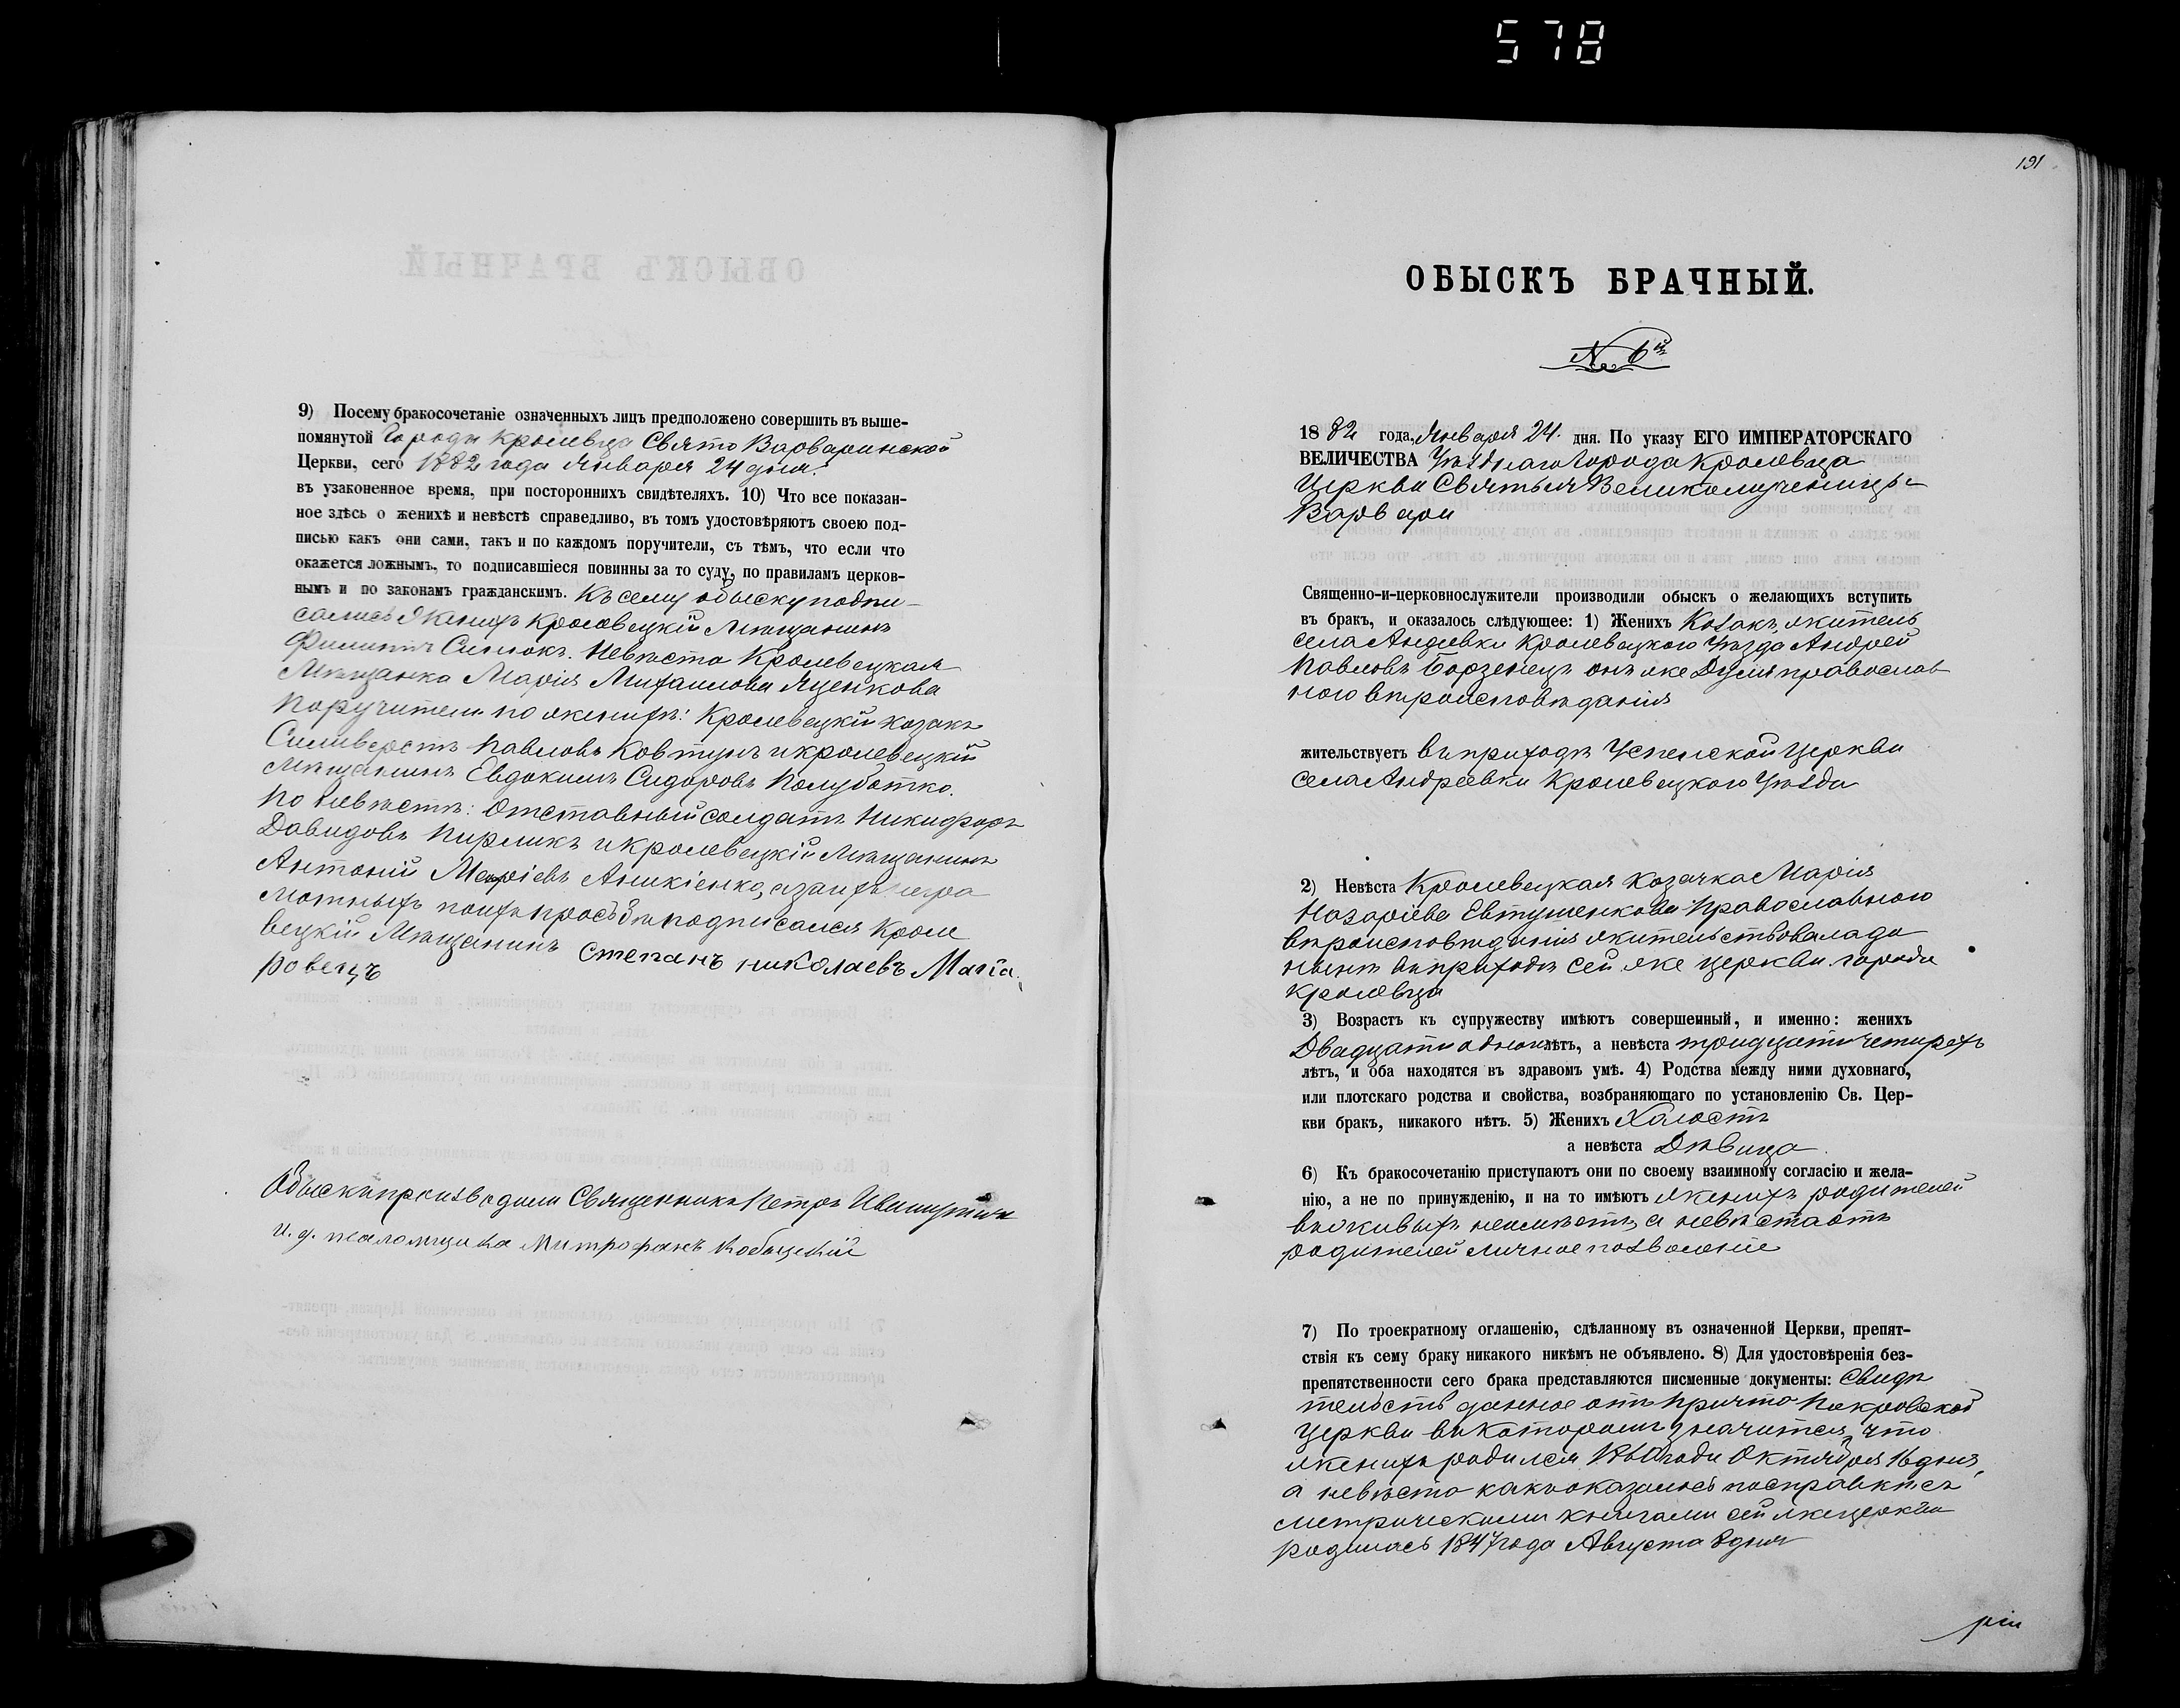 578
9) Посему бракосочетаніе означенныхъ лицъ предположено совершить въ выше-
помянутой Города Кролевца Свято Варваринской
Церкви, сего 1882 года Января 24 дня.
въ узаконенное время, при постороннихъ свидѣтеляхъ. 10) Что все показан-
ное здѣсь о женихѣ и невѣстѣ справедливо, въ томъ удостовѣряютъ своею под-
писью какъ они сами, такъ и по каждомъ поручители, съ тѣмъ, что если что
окажется ложнымъ, то подписавшіеся повинны за то суду, по правиламъ церков-
нымъ и по законамъ гражданскимъ. Къ сему обыску подпи-
сались Женихъ Кролевецкій Мѣщанинъ
Филиппъ. Невѣста Кролевецкая
Мѣщанка Марія Михаилова Яценкова
Поручители по женихѣ: Кролевецкій козакъ
Силиверстъ Павловъ Ковтунъ и кролевецкій
мѣщанинъ Евдокимъ Сидоровъ Полуботко.
По невѣстѣ: Отставный солдатъ Никифоръ
Давидовъ Пирликъ и Кролевецкій Мѣщанинъ
Антоній Аникіенко, а за ихъ негра
мотныхъ по ихъ просьбѣ подписался Кроле
вецкій Мѣщанинъ Степанъ николаевъ Магіа
ровецъ
Обыскъ производили Священникъ Петръ
и. д. псаломщика Митрофанъ
131
ОБЫСКЪ БРАЧНЫЙ.
№ 6й
1882 года, Января 24. дня. По указу ЕГО ИМПЕРАТОРСКАГО
ВЕЛИЧЕСТВА Уѣзднаго Города Кролевца
Церкви Святыя Великомученицы
Варвары
Священно-и-церковнослужители производили обыскъ о желающихъ вступить
въ бракъ, и оказалось слѣдующее: 1) Женихъ Козакъ, житель
села Андреевки Кролевецкого Уѣзда Андрей
Павловъ Борзенецъ онъ же православ
ного вѣроисповѣданія
жительствуетъ въ приходѣ Успенской Церкви
села Андреевки Кролевецкого Уѣзда
2) Невѣста Кролевецкая Козачка Марія
Назаріева Евтушенкова Православного
вѣроисповѣданія жительствовала до
нынѣ въ приходѣ сей же церкви города
Кролевца
3) Возрастъ къ супружеству имѣютъ совершенный, и именно: женихъ
Двадцати одного лѣтъ, а невѣста тридцати четырехъ
лѣтъ, и оба находятся въ здравомъ умѣ. 4) Родства между ними духовнаго,
или плотскаго родства и свойства, возбраняющаго по установленію Св. Цер-
кви бракъ, никакого нѣтъ. 5) Женихъ Холостъ
а невѣста Дѣвица
6) Къ бракосочетанію приступаютъ они по своему взаимному согласію и жела-
нію, а не по принужденію, и на то имѣютъ женихъ родителей
въ живыхъ неимѣетъ, а невѣста отъ
родителей личное позволеніе
7) По троекратному оглашенію, сдѣланному въ означенной Церкви, препят-
ствія къ сему браку никакого никѣмъ не объявлено. 8) Для удостовѣренія без-
препятственности сего брака представляются писменные документы: Свидѣ
тельство данное отъ Причта Покровской
церкви въ которомъ значится, что
женихъ родился 1860 года Октября 16 дня,
а невѣста какъ оказалось по справкѣ съ
метрическими книгами сей же церкви
родилась 1847 года Августа 8 дня